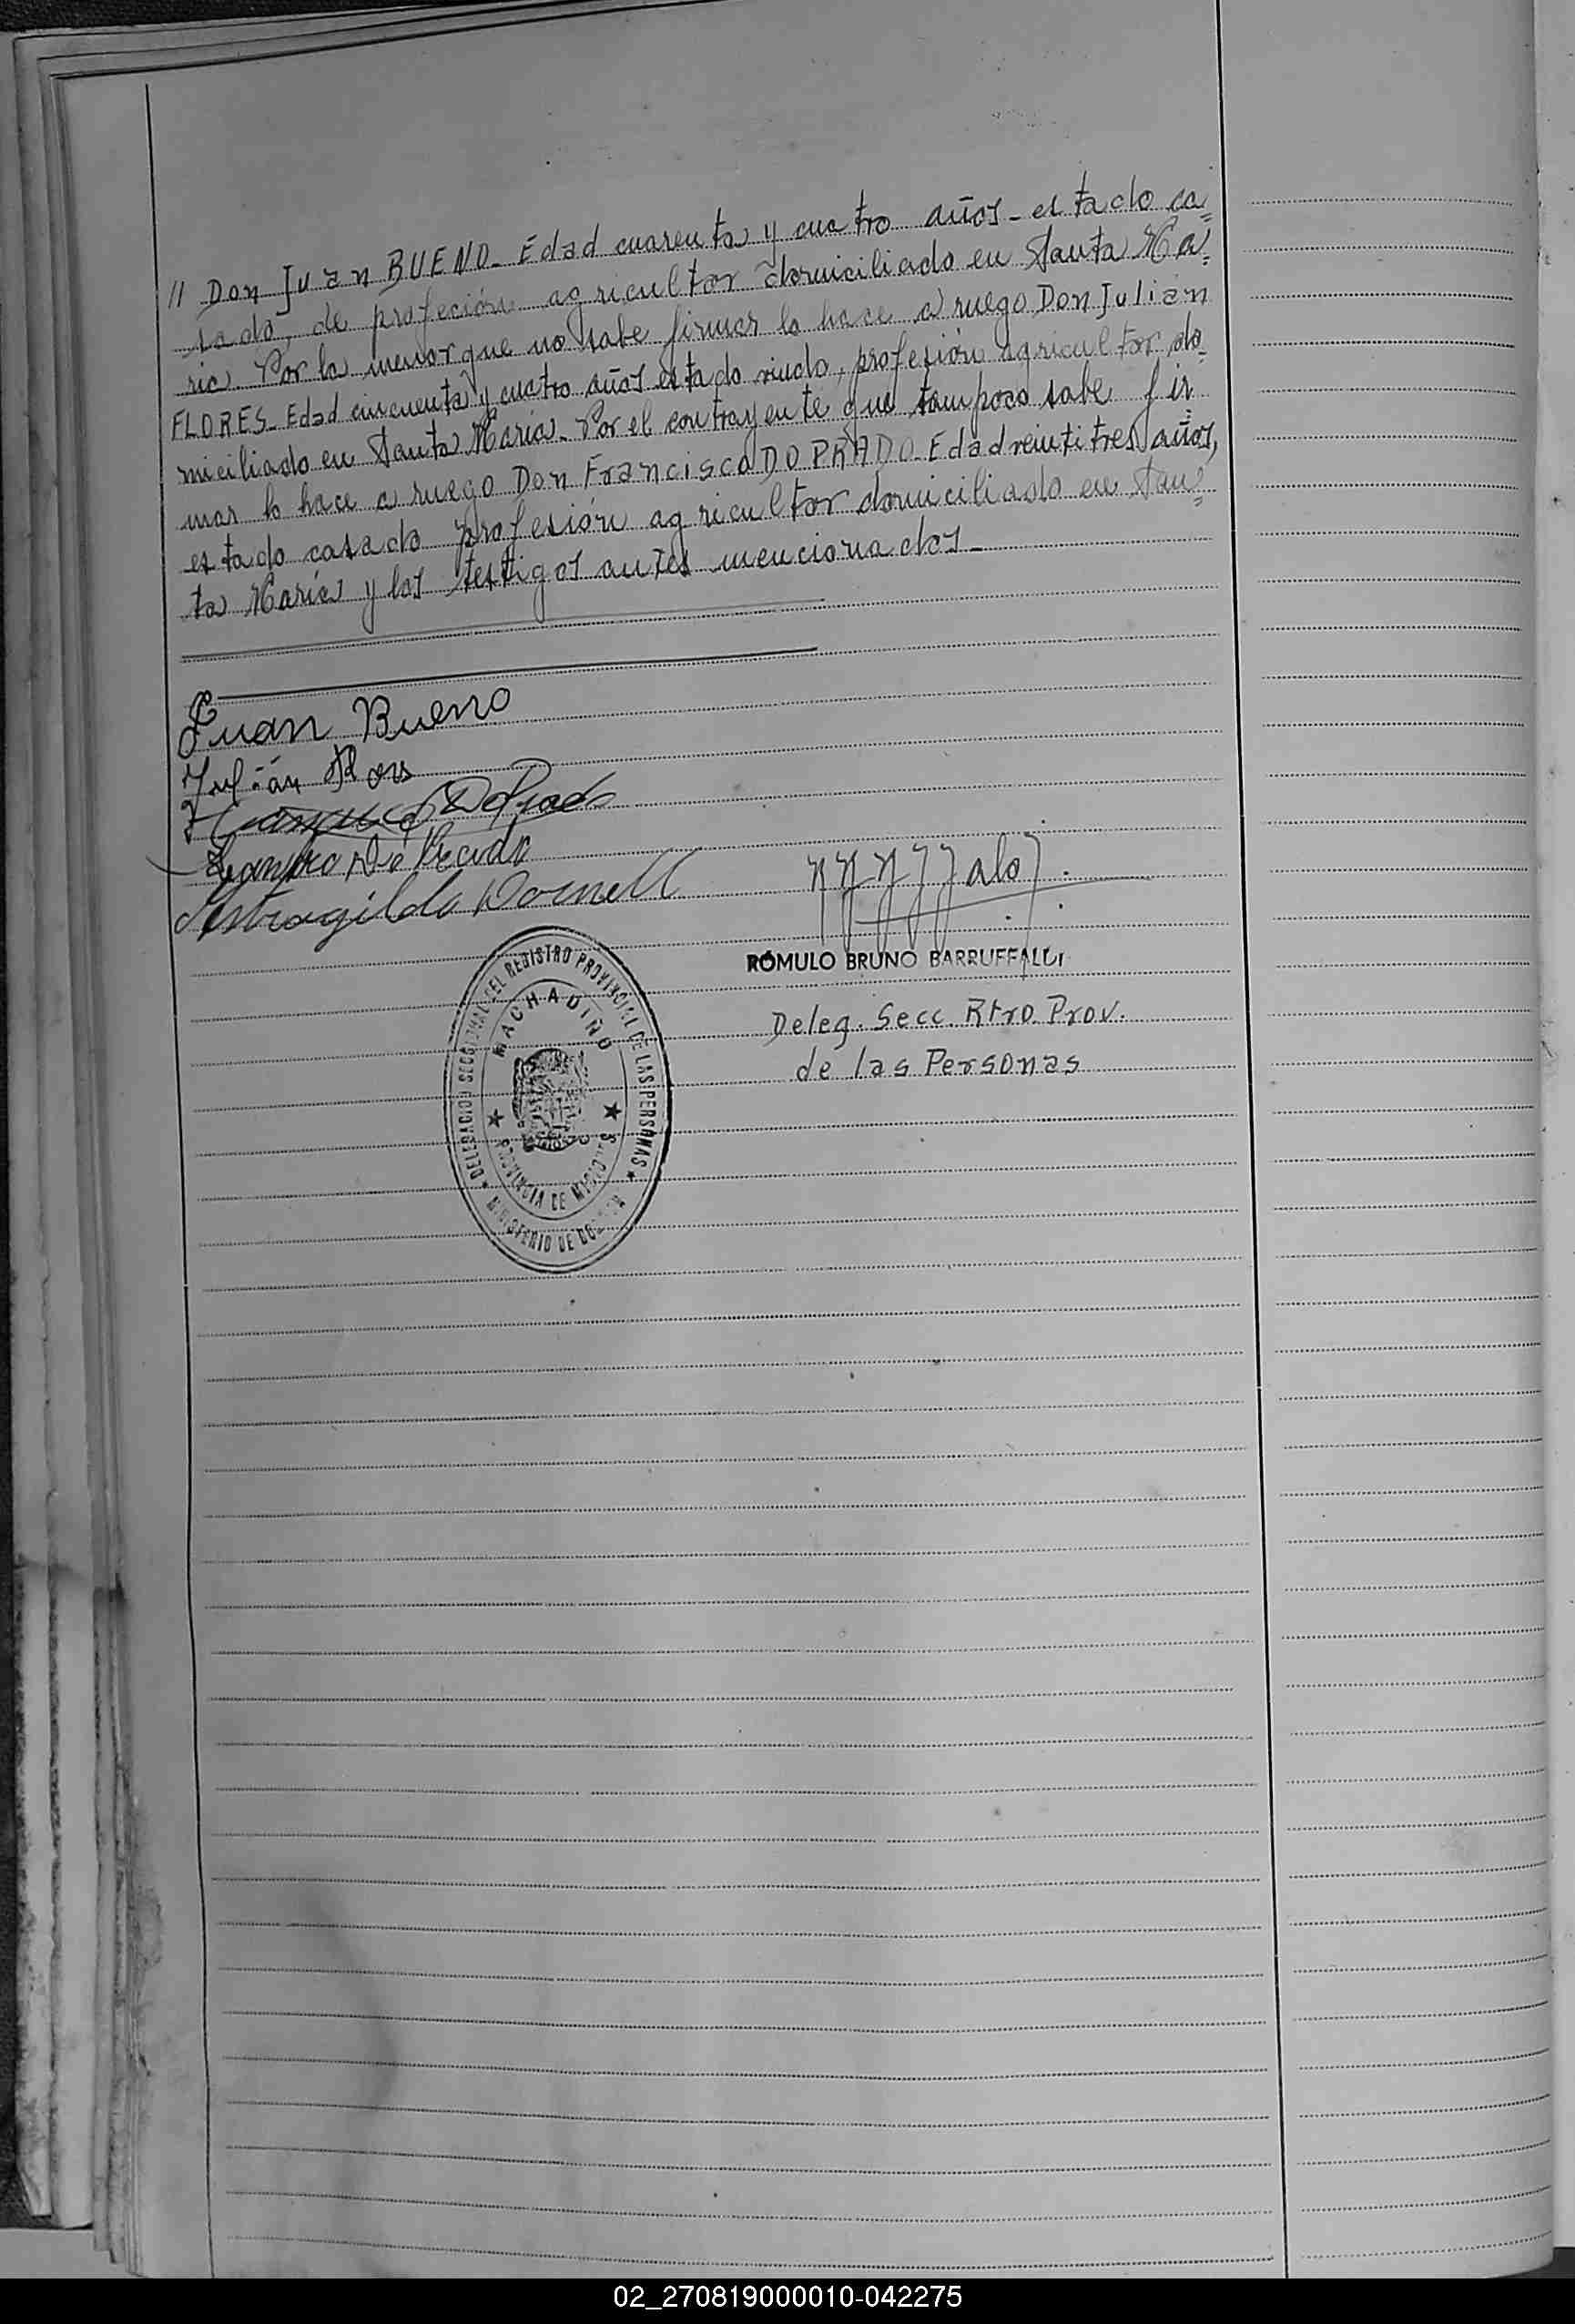 // Don Juan BUENO. Edad cuarenta y cuatro años - estado ca=
sado, de profeción agricultor domiciliado en Santa Ma=
ria. Por la menor que no sabe firmar lo hace a ruego Don Julián
FLORES. Edad cincuenta y cuatro años estado viudo, profesión agricultor do=
miciliado en Santa María. Por el contrayente que tampoco sabe fir=
mar lo hace a ruego Don Francisco DO PRADO. Edad veintitres años,
estado casado profesión agricultor domiciliado en San=
ta María y los testigos antes mencionados -
Juan Bueno
Julián Flores
Francisco Do Prado
Do Prado
Dornell
RÓMULO BRUNO BARRUFFALDI
Deleg. Secc. Rtro. Prov.
de las Personas
DELEGACION SECCIONAL DEL REGISTRO PROVINCIAL DE LAS PERSONAS
MACHADIÑO
PROVINCIA DE MISIONES
MINISTERIO DE
02_270819000010-042275